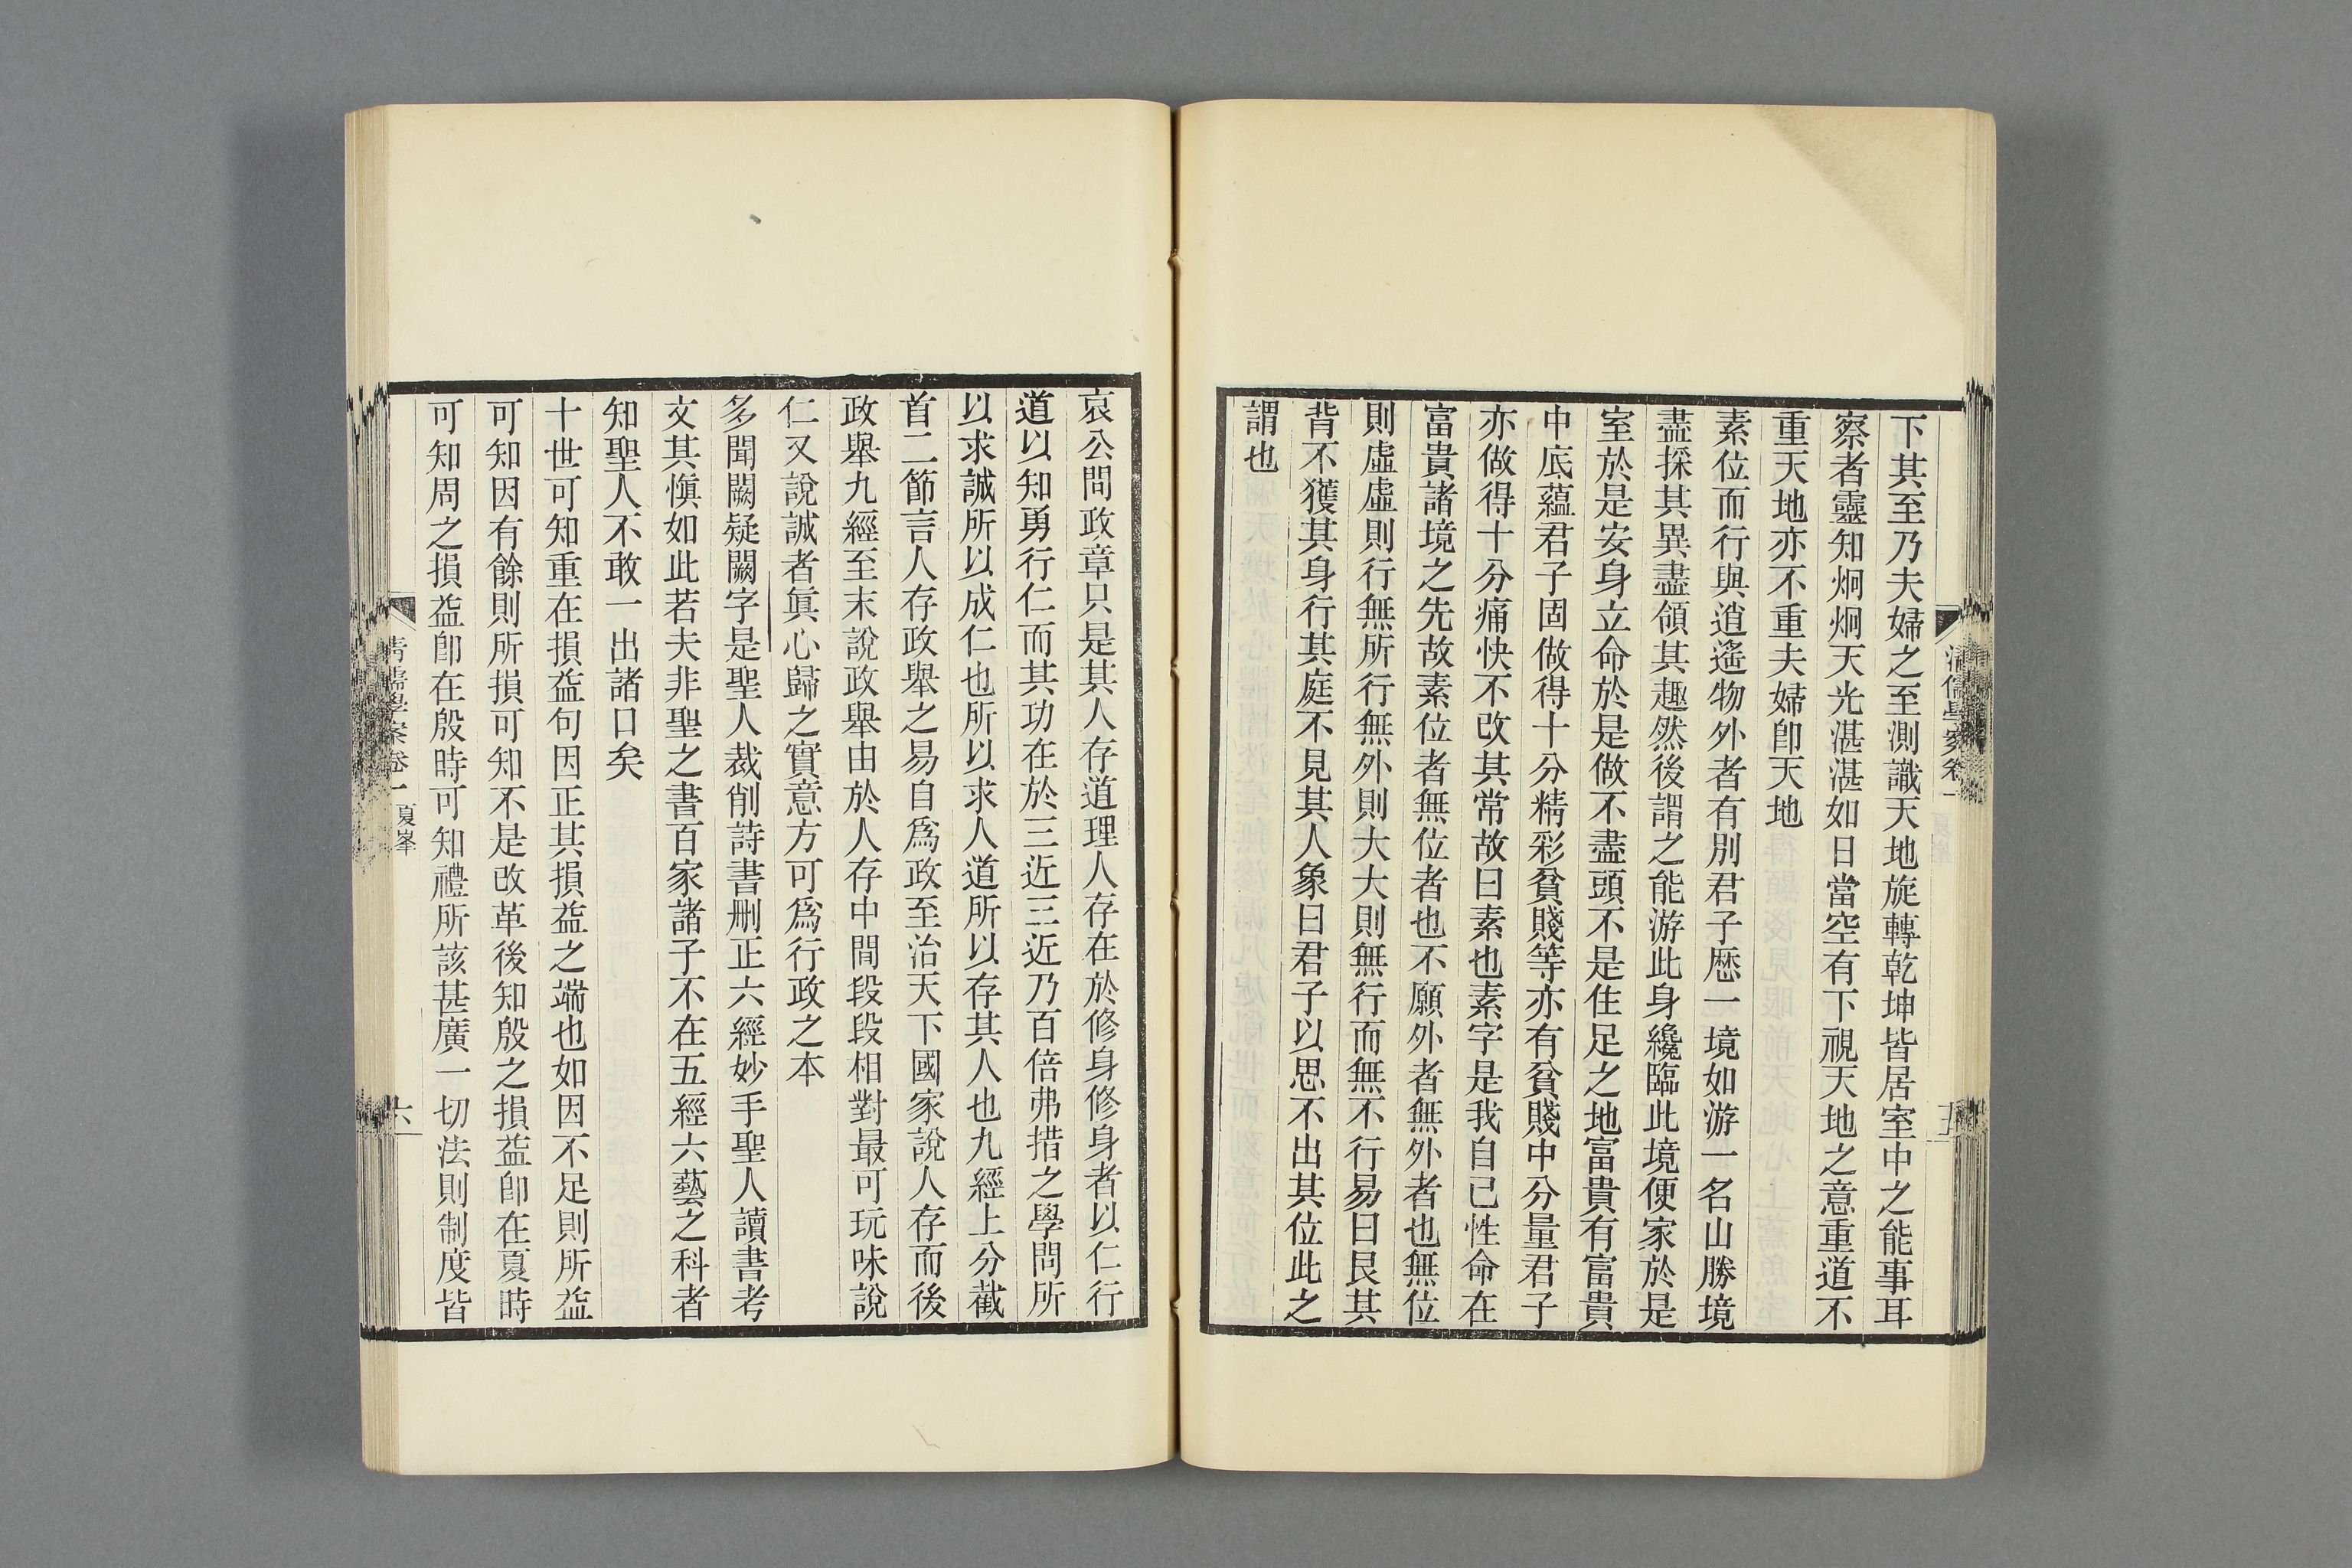 下其至乃夫婦之至測識天地旋轉乾坤皆居室中之能事耳
察者靈知炯炯天光湛湛如日當空有下視天地之意重道不
重天地亦不重夫婦卽天地
素位而行與逍遙物外者有別君子歷一境如游一名山勝境
盡採其異盡領其趣然後謂之能游此身纔臨此境便家於是
室於是安身立命於是做不盡頭不是住足之地富貴有富貴
中底蘊君子固做得十分精彩貧賤等亦有貧賤中分量君子
亦做得十分痛快不改其常故曰素也素字是我自己性命在
富貴諸境之先故素位者無位者也不願外者無外者也無位
則虛虛則行無所行無外則大大則無行而無不行易曰艮其
背不獲其身行其庭不見其人象曰君子以思不出其位此之
謂也
清儒學案卷一
五
哀公問政章只是其人存道理人存在於修身修身者以仁行
道以知勇行仁而其功在於三近三近乃百倍弗措之學問所
以求誠所以成仁也所以求人道所以存其人也九經上分截
首二節言人存政舉之易自爲政至治天下國家說人存而後
政舉九經至末說政舉由於人存中間段段相對最可玩味說
仁又說誠者眞心歸之實意方可爲行政之本
多聞闕疑闕字是聖人裁削詩書刪正六經妙手聖人讀書考
文其愼如此若夫非聖之書百家諸子不在五經六藝之科者
知聖人不敢一出諸口矣
十世可知重在損益句因正其損益之端也如因不足則所益
可知因有餘則所損可知不是改革後知殷之損益卽在夏時
可知周之損益卽在殷時可知禮所該甚廣一切法則制度皆
清儒學案卷一 夏峯
六